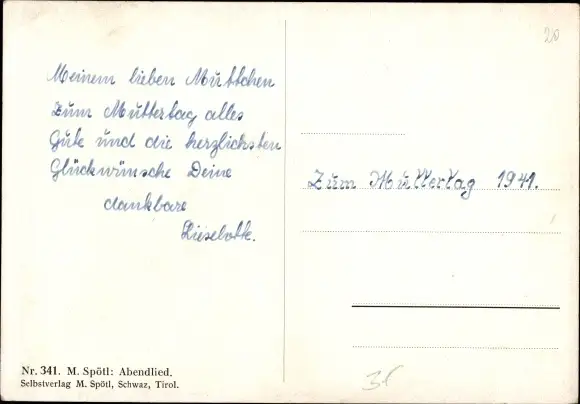 Meinem lieben Muttchen
zum Muttertag alles
Gute und die herzlichsten
Glückwünsche Deine
dankbare
Lieselotte.
Zum Muttertag 1941.
20
Nr. 341. M. Spötl: Abendlied.
Selbstverlag M. Spötl, Schwaz, Tirol.